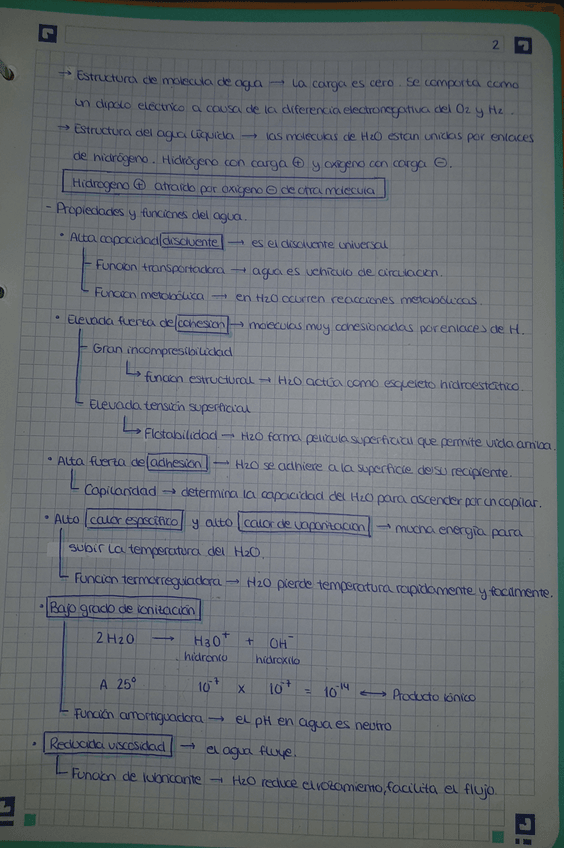 2
→ Estructura de molecula de agua → La carga es cero. Se comporta como
un dipolo eléctrico a causa de la diferencia electronegativa del O2 y H2.
→ Estructura del agua líquida → las moleculas de H2O estan unidas por enlaces
de hidrógeno. Hidrógeno con carga ⊕ y oxígeno con carga ⊖.
Hidrogeno ⊕ atraído por oxígeno ⊖ de otra molécula
- Propiedades y funciones del agua.
• Alta capacidad disolvente → es el disolvente universal
Función transportadora → agua es vehículo de circulación.
Función metabólica → en H2O ocurren reacciones metabólicas.
• Elevada fuerza de cohesion → moleculas muy cohesionadas por enlaces de H.
Gran incompresibilidad
↳ función estructural → H2O actúa como esqueleto hidrostático.
Elevada tensión superficial
↳ Flotabilidad → H2O forma película superficial que permite vida
• Alta fuerza de adhesión → H2O se adhiere a la superficie de su recipiente.
Capilaridad → determina la capacidad del H2O para ascender por un capilar.
• Alto calor específico y alto calor de vaporización → mucha energía para
subir la temperatura del H2O.
Función termorreguladora → H2O pierde temperatura rapidamente y facilmente.
• Bajo grado de ionización
2 H2O → H3O+ + OH-
hidronio hidroxilo
A 25° 10^-7 x 10^-7 = 10^-14 ↔ Producto iónico
Función amortiguadora → el pH en agua es neutro
• Reducida viscosidad → el agua fluye.
Función de lubricante → H2O reduce el rozamiento, facilita el flujo.